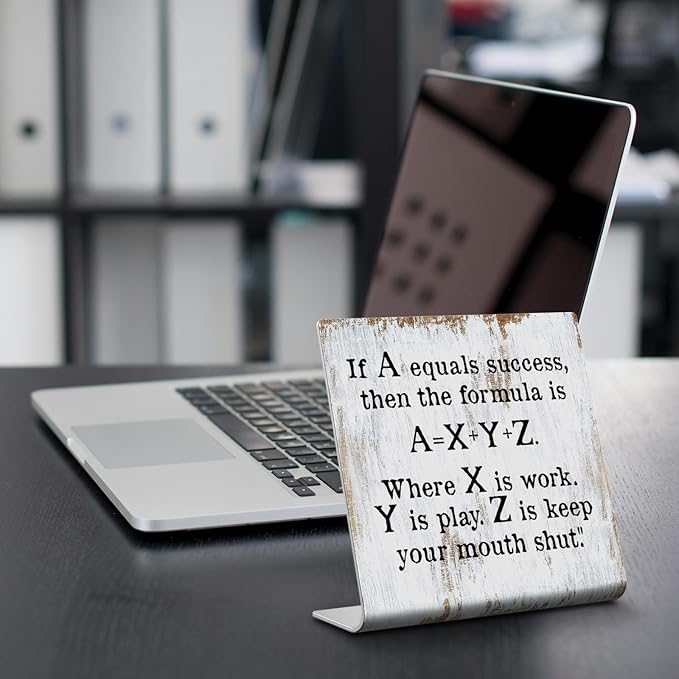 If A equals success,
then the formula is
A=X+Y+Z.
Where X is work.
Y is play. Z is keep
your mouth shut."